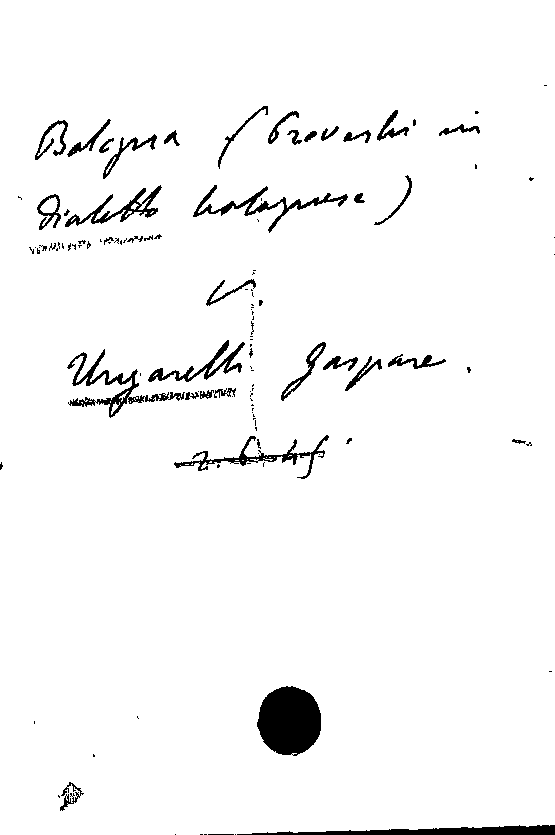 Bologna (Proverbi in
dialetto bolognese)
V.
Ungarelli Gaspare.